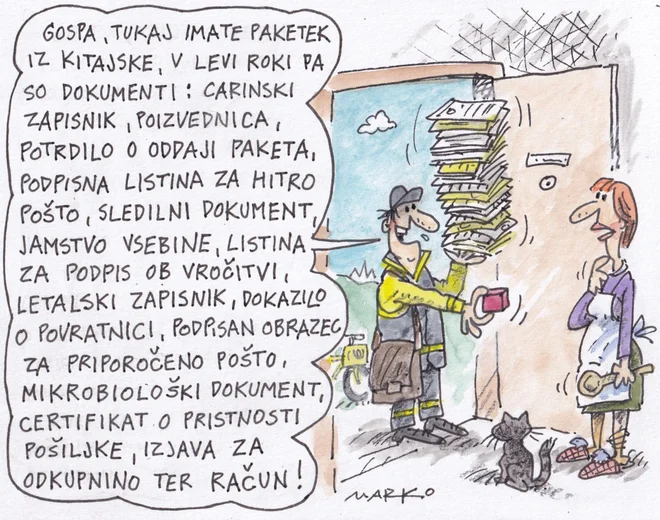 GOSPA, TUKAJ IMATE PAKETEK
IZ KITAJSKE, V LEVI ROKI PA
SO DOKUMENTI: CARINSKI
ZAPISNIK, POIZVEDNICA,
POTRDILO O ODDAJI PAKETA,
PODPISNA LISTINA ZA HITRO
POŠTO, SLEDILNI DOKUMENT,
JAMSTVO VSEBINE, LISTINA
ZA PODPIS OB VROČITVI,
LETALSKI ZAPISNIK, DOKAZILO
O POVRATNICI, PODPISAN OBRAZEC
ZA PRIPOROČENO POŠTO,
MIKROBIOLOŠKI DOKUMENT,
CERTIFIKAT O PRISTNOSTI
POŠILJKE, IZJAVA ZA
ODKUPNINO TER RAČUN!
MARKO